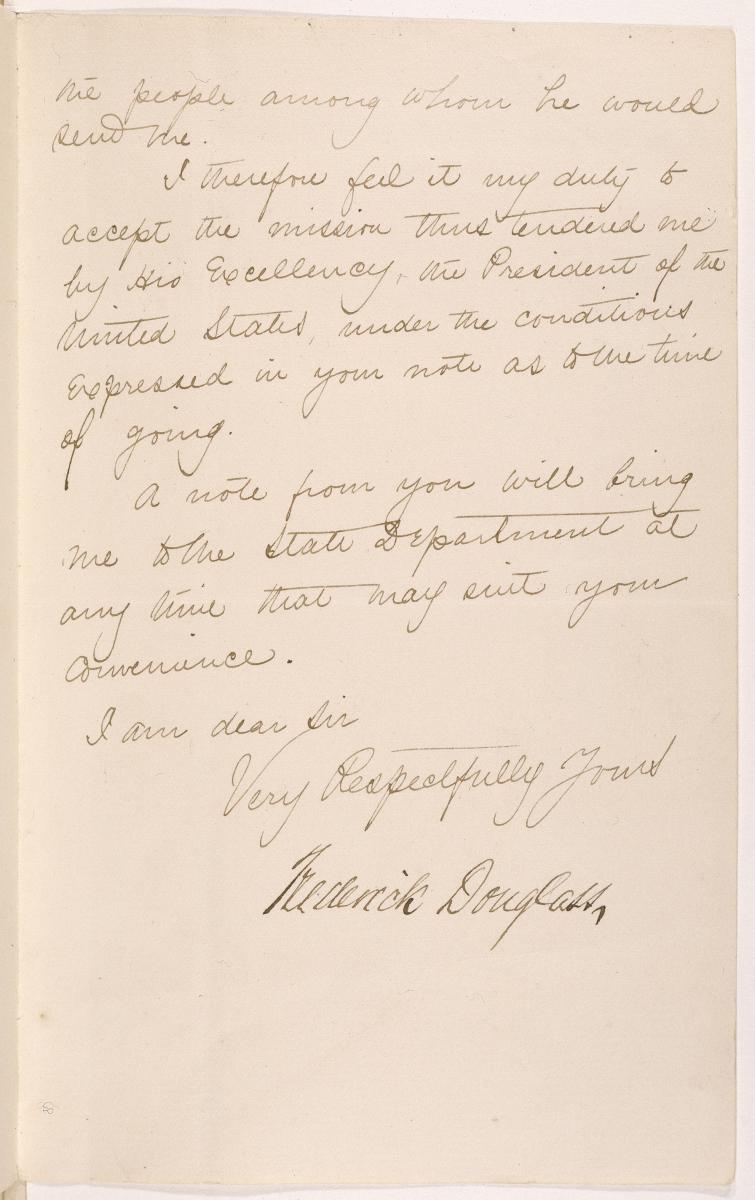 the people among whom he would
send me.
I therefore feel it my duty to
accept the mission thus tendered me
by His Excellency, the President of the
United States, under the conditions
Expressed in your note as to the time
of going.
A note from you will bring
me to the State Department at
any time that may suit your
convenience.
I am dear Sir
Very Respectfully Yours
Frederick Douglass,
8